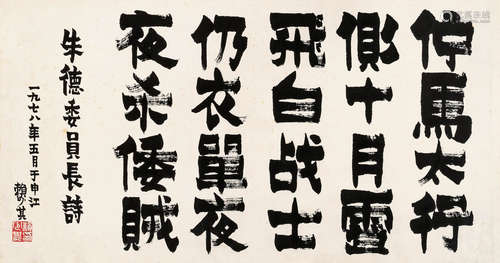 佇馬太行
側十月雪
飛白战士
仍衣單夜
夜杀倭賊
朱德委員長詩
一九七八年五月于申江
賴少其